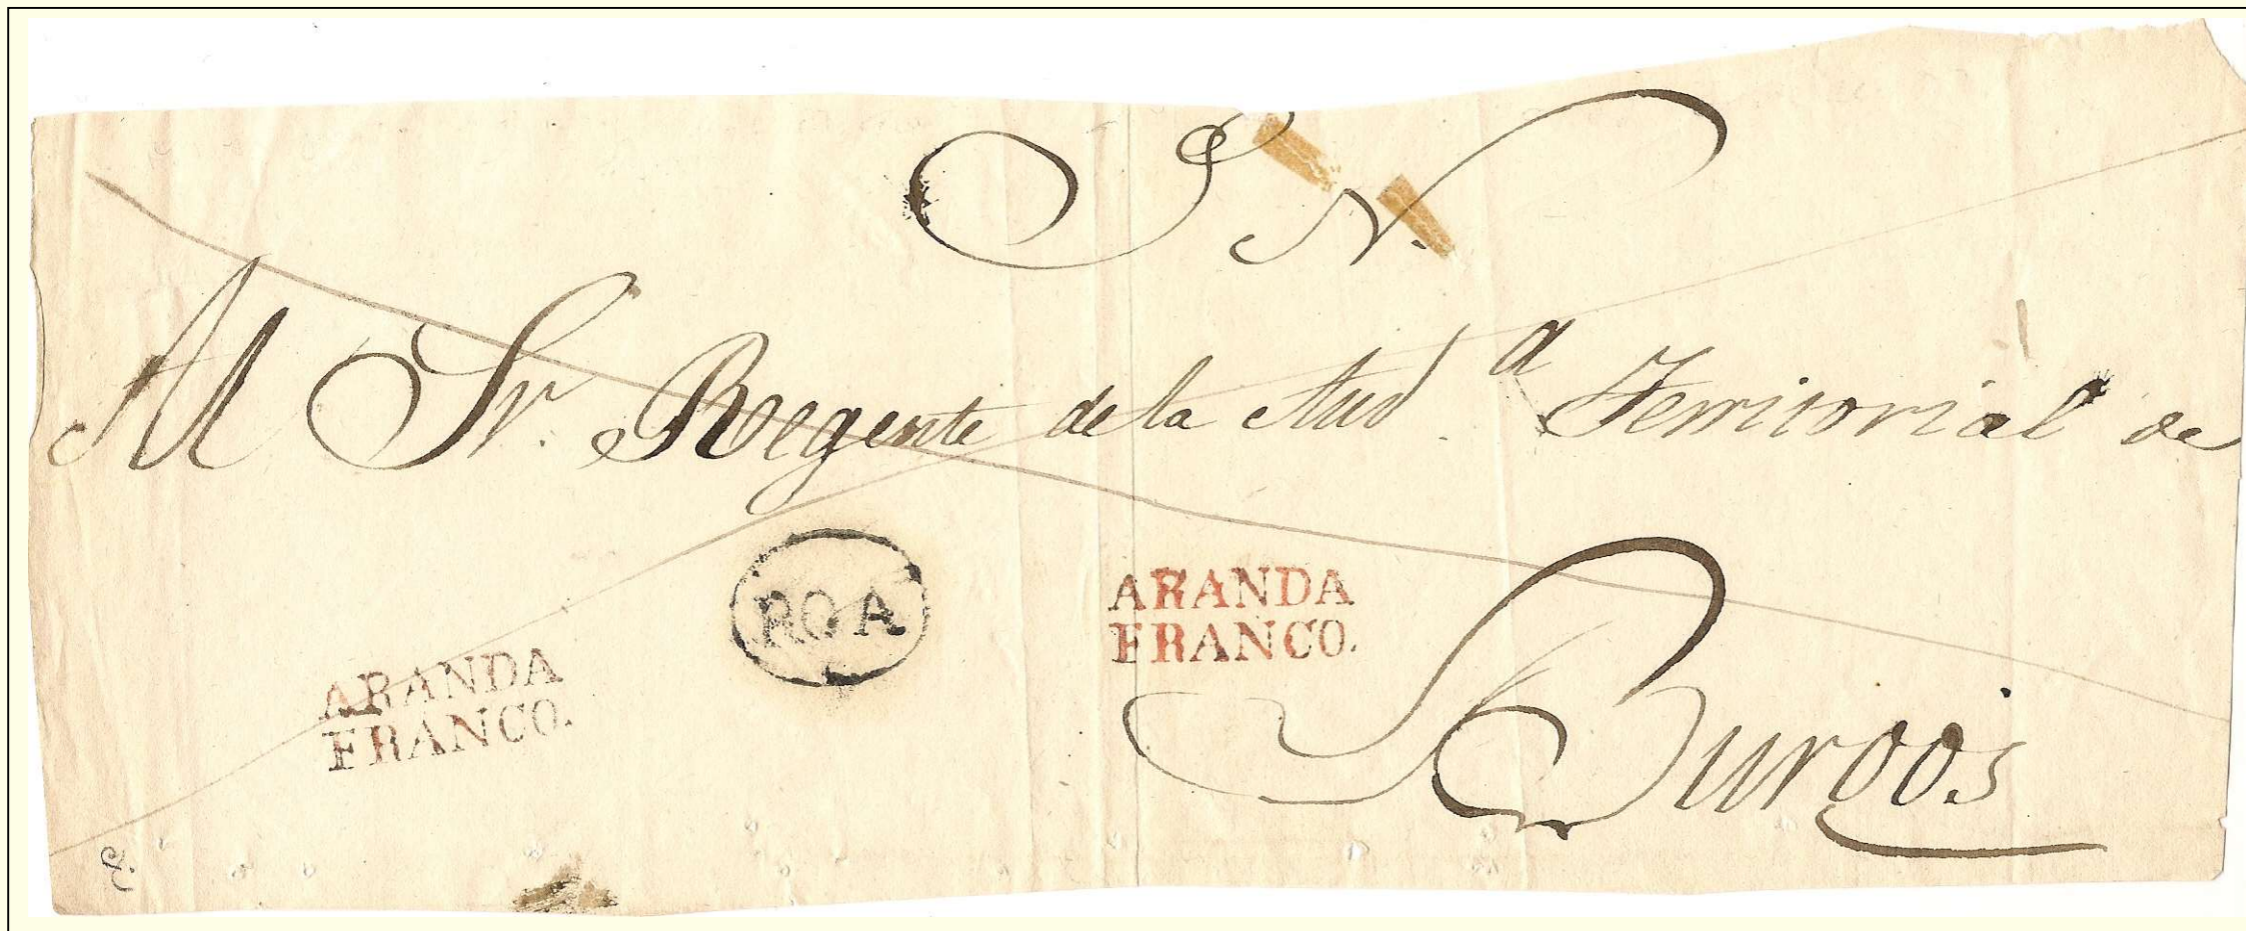 S. N.
Al Sr. Regente de la Aud.ª Territorial de
ROA
ARANDA
FRANCO.
ARANDA
FRANCO.
Burgos